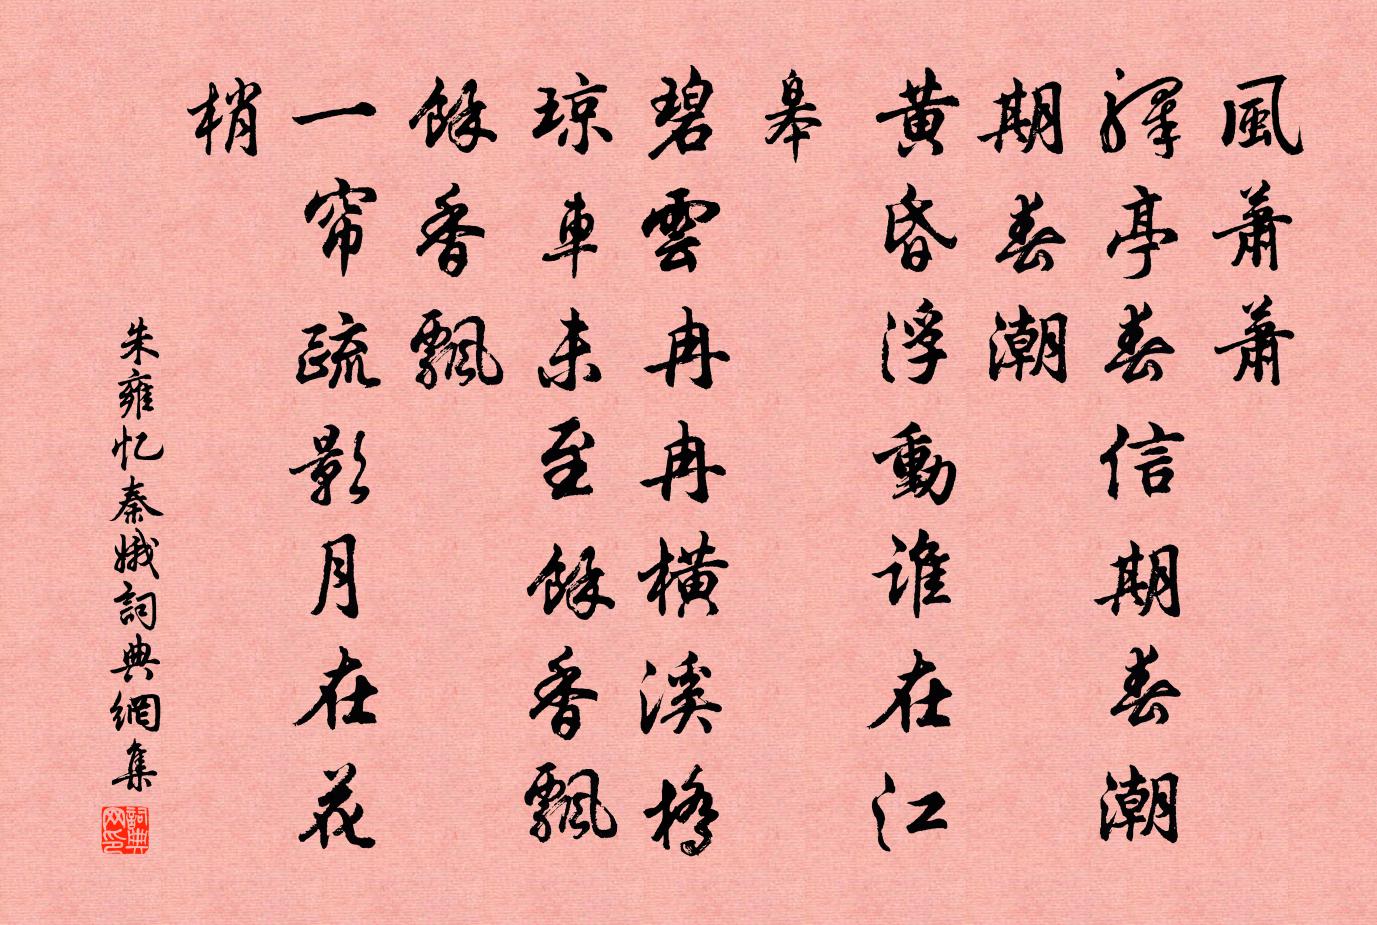 風蕭蕭
驛亭春信期春潮
期春潮
黄昏浮動誰在江
皋
碧雲冉冉橫溪橋
琼車未至餘香飄
餘香飄
一帘疏影月在花
梢
朱雍忆秦娥詞典網集
詞典
网印